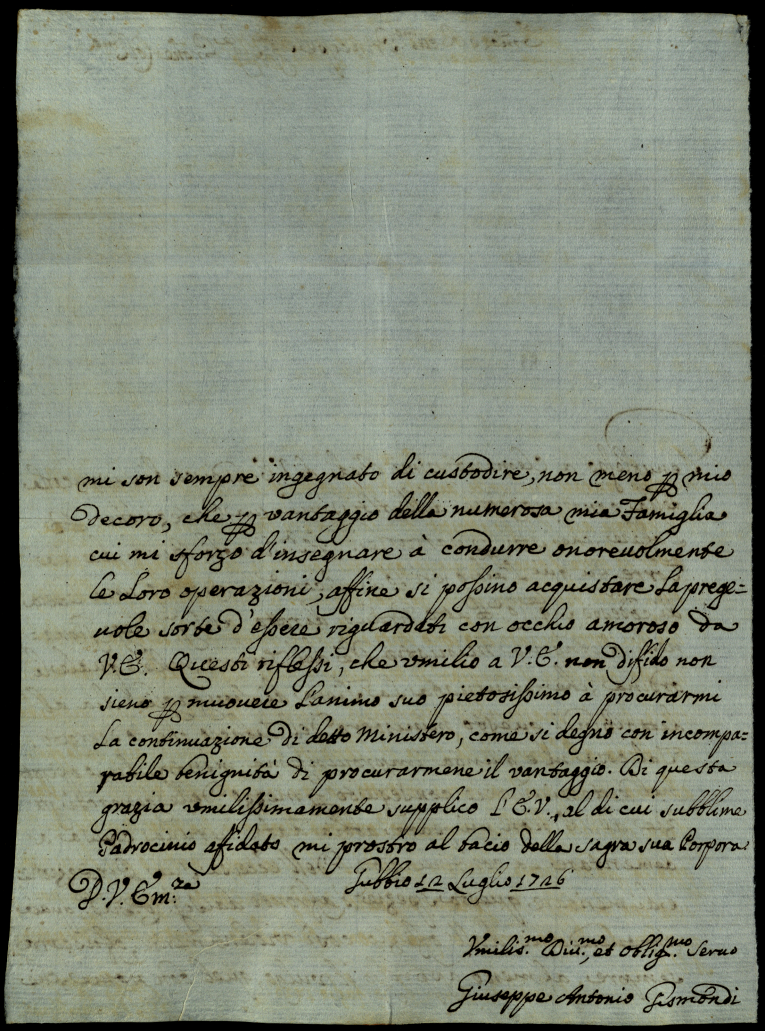 mi son sempre ingegnato di custodire, non meno p mio
decoro, che p vantaggio della numerosa mia Famiglia
cui mi sforzo d'insegnare à condurre onorevolmente
le Loro operazioni, affine si possino acquistare la prege=
uole sorte d'essere riguardati con occhio amoroso da
V.E. Questi riflessi, che vmilio a V.E. non difido non
sieno p muouere l'animo suo pietosissimo à procurarmi
la continuazione di detto Ministero, come si degnò con incompa=
rabile benignità di procurarmene il vantaggio. Di questa
grazia vmilissimamente supplico l'E.V., al di cui subblime
Padrocinio affidato mi prostro al bacio della sagra sua Porpora
D. V. Em.za Gubbio 12 Luglio 1726
Vmilis.mo Diu.mo, et oblig.mo Seruo
Giuseppe Antonio Gismondi